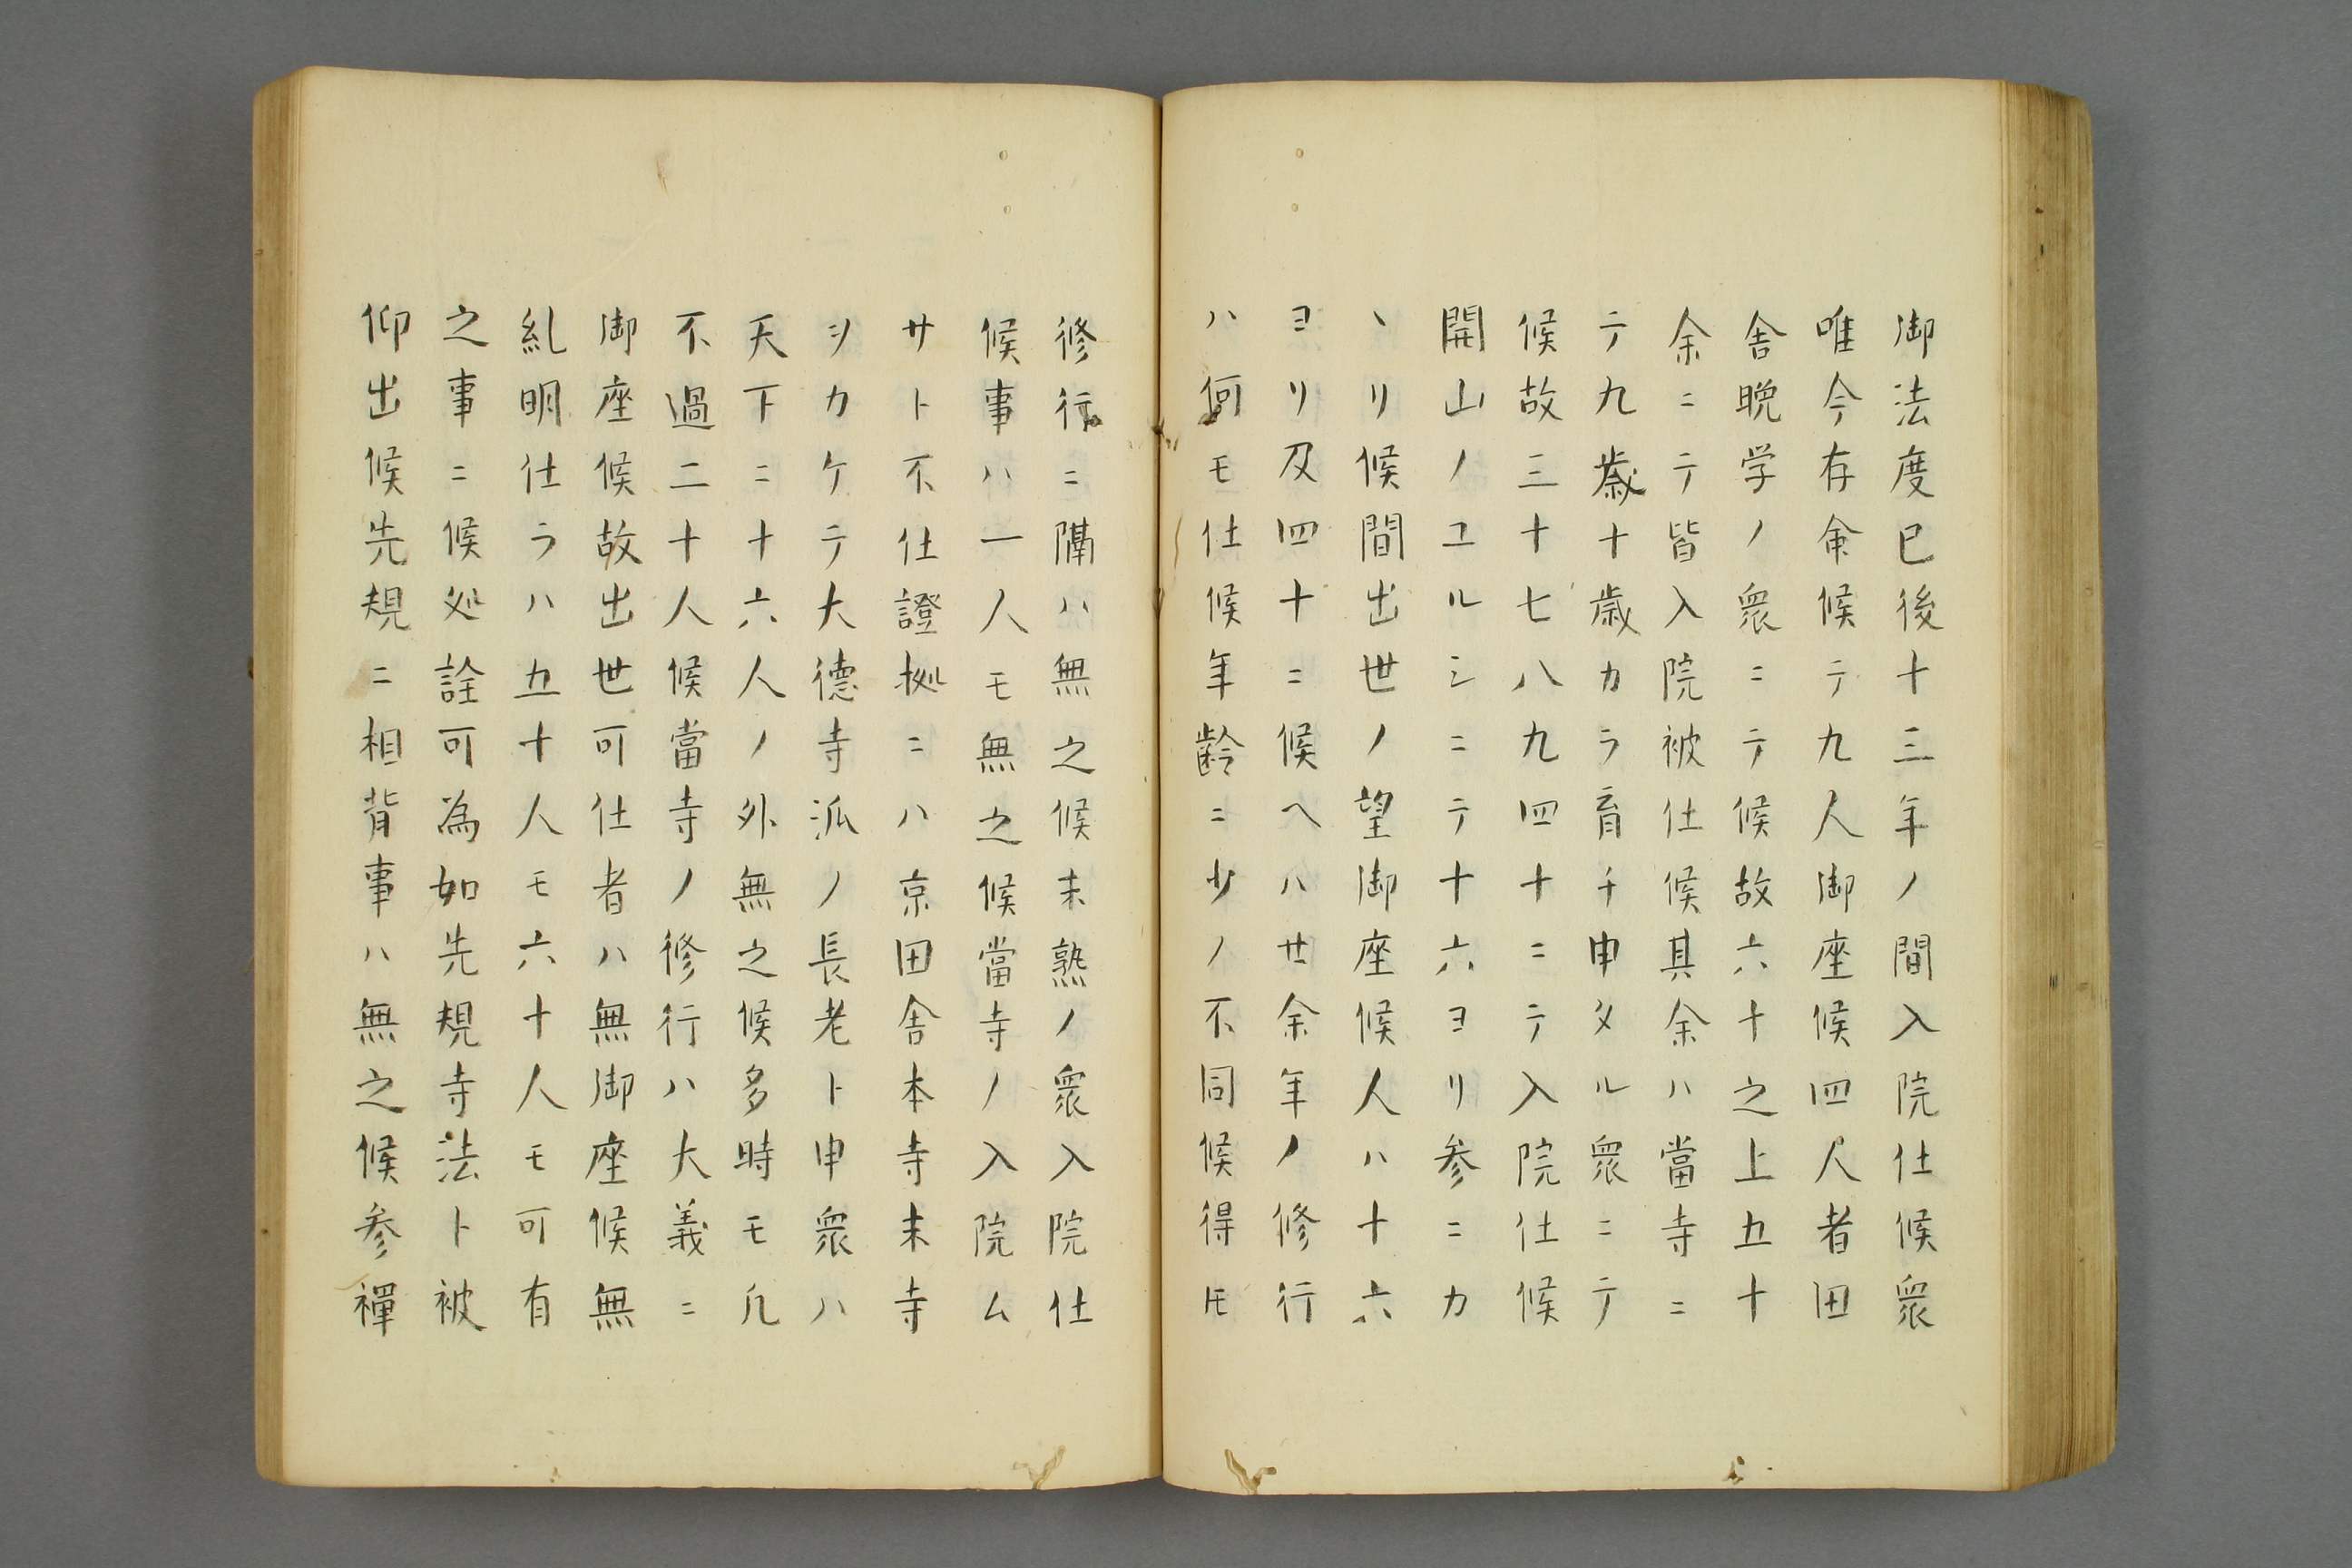 御法度已後十三年ノ間入院仕候衆
唯今存命候テ九人御座候四人者田
舎晩学ノ衆ニテ候故六十之上五十
余ニテ皆入院被仕候其余ハ當寺ニ
テ九歳十歳カラ育チ申タル衆ニテ
候故三十七八九四十ニテ入院仕候
開山ノユルシニテ十六ヨリ参ニカ
ヽリ候間出世ノ望御座候人ハ十六
ヨリ及四十ニ候ヘハ廿余年ノ修行
ハ何モ仕候年齢ニ少ノ不同候得𪜈
修行ニ隔ハ無之候未熟ノ衆入院仕
候事ハ一人モ無之候當寺ノ入院ム
サト不仕證拠ニハ京田舎本寺末寺
ヲカケテ大徳寺派ノ長老ト申衆ハ
天下ニ十六人ノ外無之候多時モ凡
不過二十人候當寺ノ修行ハ大義ニ
御座候故出世可仕者ハ無御座候無
糺明仕ラハ五十人モ六十人モ可有
之事ニ候処詮可為如先規寺法ト被
仰出候先規ニ相背事ハ無之候参禅